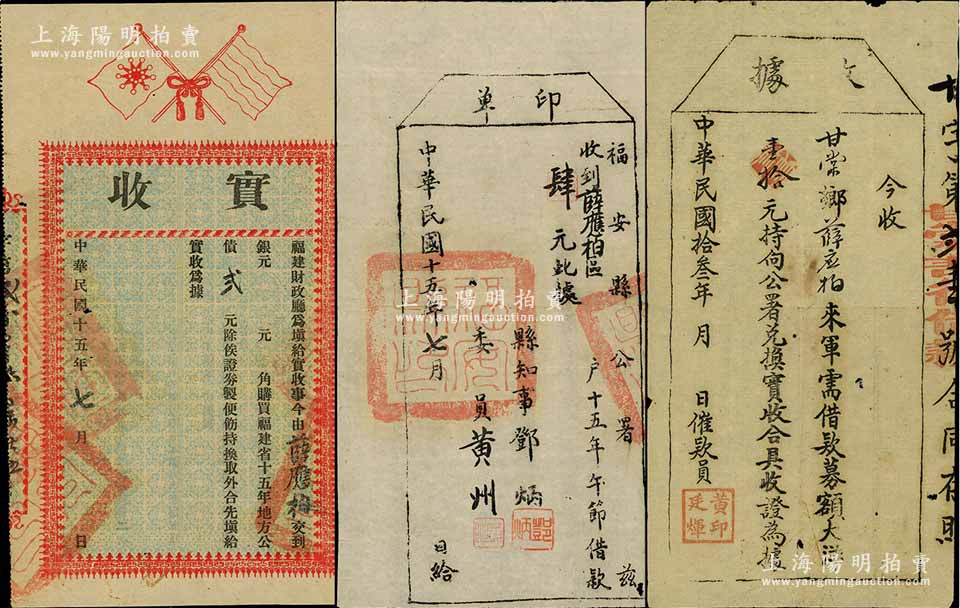 上海陽明拍賣
www.yangmingauction.com
實收
福建財政廳爲塡給實收事今由薛應柏交到
銀元 元 角購買福建省十五年地方公
債 貳 元除俟證劵製便飭持換取外合先塡給
實收爲據
中華民國十五年 七 月 日
上海陽明拍賣
www.yangmingauction.com
印單
福安縣公署 茲
收到薛應柏區 戶十五年午節借款
肆 元此據
縣知事鄧炳
委員黃州
中華民國十五年七月 日給
上海陽明拍賣
www.yangmingauction.com
收據
今收
甘棠鄉薛應柏來軍需借款募額大洋
壹拾元持向公署兌換實收合具收證為據
中華民國拾叁年 月 日催款員
黃印廷輝
號合同存照
上海陽明拍賣
www.yangmingauction.com